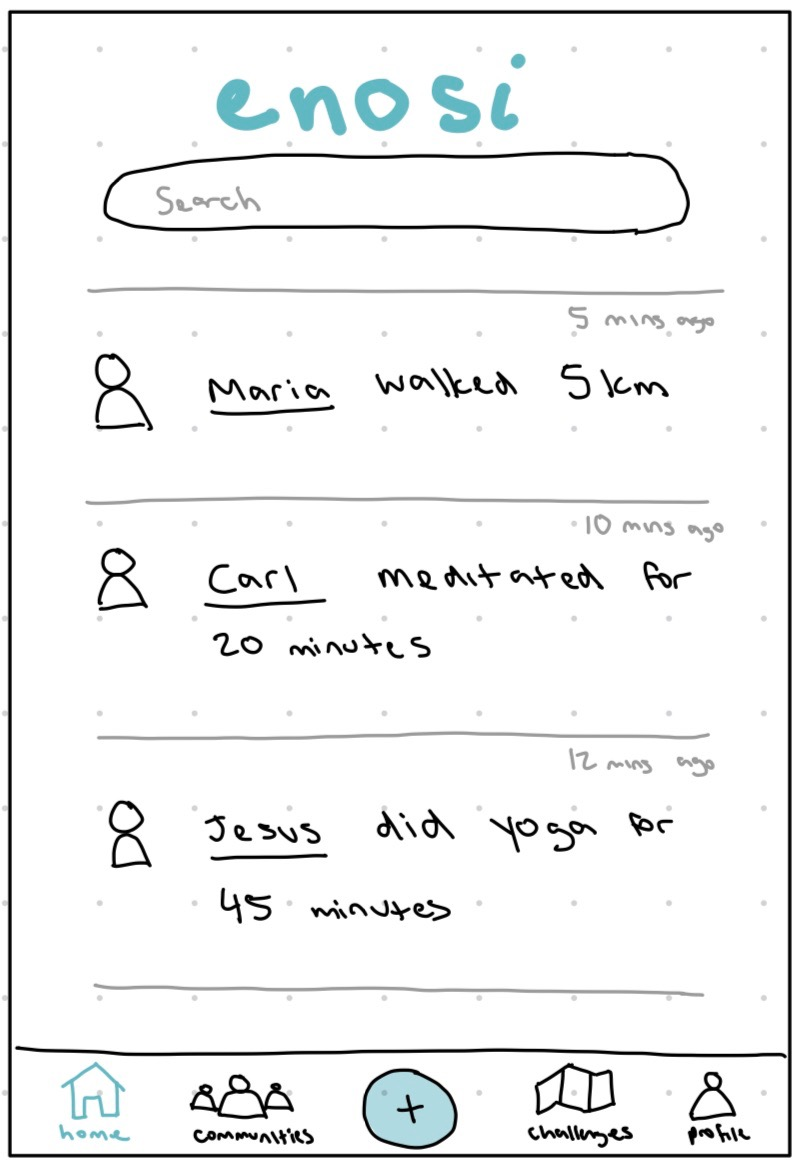 enosi
Search
5 mins ago
Maria walked 5km
10 mins ago
Carl meditated for
20 minutes
12 mins ago
Jesus did yoga for
45 minutes
+
home communities challenges profile